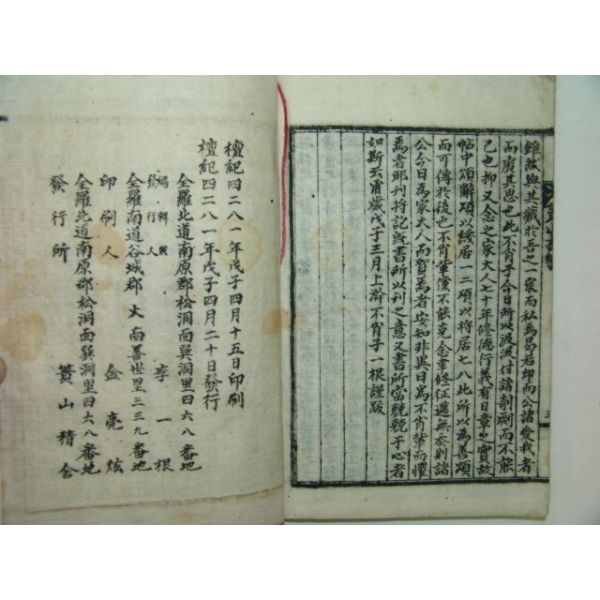 雖然與其藏於吾之一家而私焉曷若印而公諸愛我者
而廣其思也此不肖子今日所以汲汲付諸剞劂而不能
已也抑又念之家大人七十年修德行義有日章之實故
帖中頌辭頌以綏居一二頌以將居七八此所以爲善頌
而可傳於後也不肖輩僅不能克念聿修征邁無忝則諸
公今日爲家大人而賀焉者安知非異日爲不肖輩而懼
焉者耶刊將訖旣書所以刊之意又書所當兢兢于心者
如斯云爾歲戊子三月上澣不肖子一根謹跋
檀紀四二八一年戊子四月十五日印刷
檀紀四二八一年戊子四月二十日發行
全羅北道南原郡松洞面巽洞里四六八番地
編輯兼發行人 李一根
全羅南道谷城郡火面善世里三三九番地
印刷人 金亮炫
全羅北道南原郡松洞面巽洞里四六八番地
發行所 贊山精舍